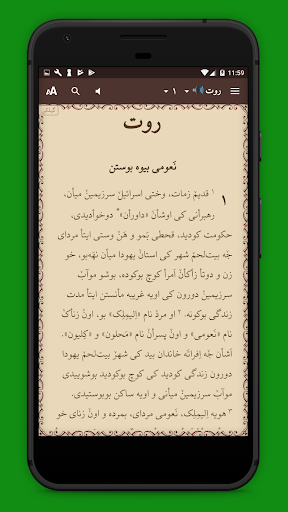 11:59
روت ۱
روت
نَعومی بیوه بوستن
۱ ۱ قدیمٚ زمات، وختی اسرائیلٚ سرزیمینٚ میأن،
رهبرأنی کی اوشأنَ «داورأن» دوخوأدیدی،
حکومت کودید، قحطی بَمو و هَنٚ وستی ایتأ مردای
جَه بیت‌لحمٚ شهر کی استانٚ یهودا میأن نهه‌بو، خو
زن و دوتأ زأکأنَ اَمرأ کوچ بوکوده، بوشو موآبٚ
سرزیمینٚ دورون کی اویه غریبه مأنستن ایتأ مدت
زندگی بوکونه. ۲ او مردٚ نام «اِلیمِلِک» بو، اونٚ زنأکٚ
نام «نَعومی» و اونٚ پسرأنٚ نام «مَحلون» و «کِلیون».
اَشأن جَه اِفراتَه خاندان بید کی شهرٚ بیت‌لحمٚ یهودا
دورون زندگی کودید کی کوچ بوکودید بوشوییدی
موآبٚ سرزیمینٚ دورون و اویه ساکن بوبوستیدی.
۳ هویه اِلیمِلِک، نَعومی مردای، بمرده و اونٚ زنای خو